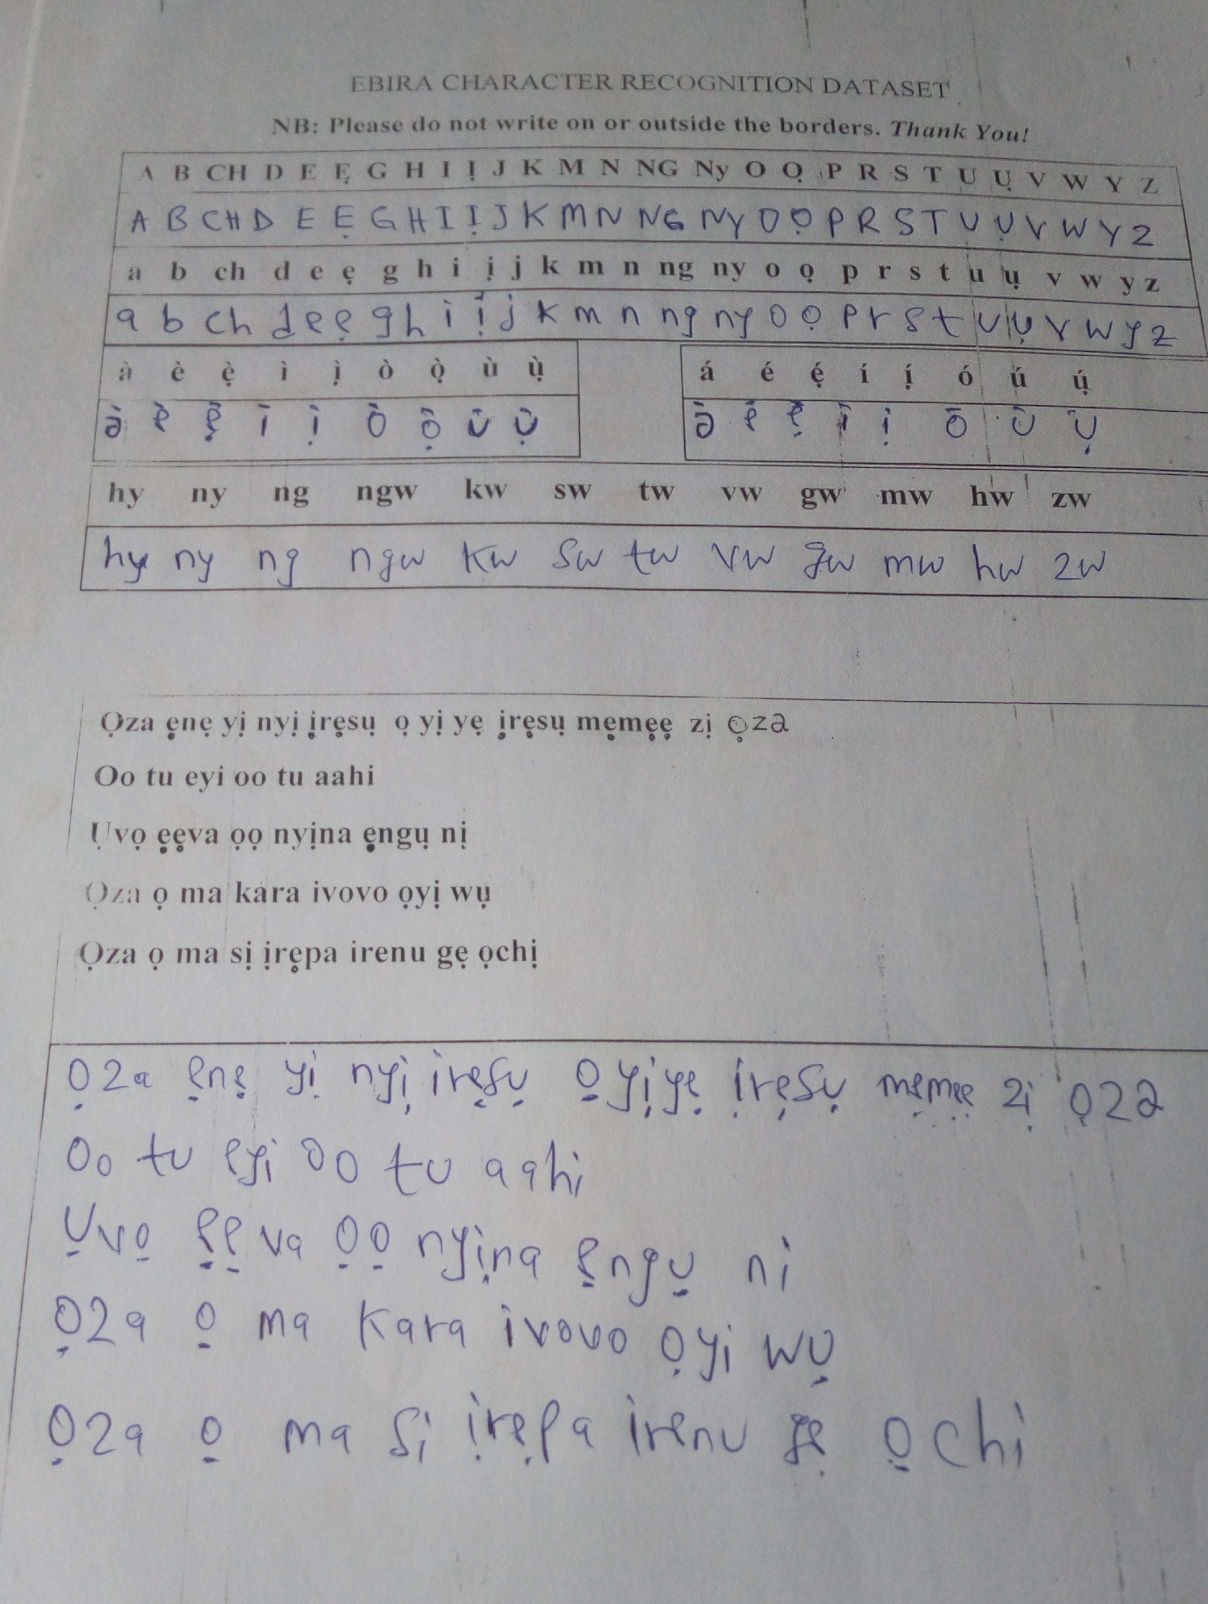 EBIRA CHARACTER RECOGNITION DATASET
NB: Please do not write on or outside the borders. Thank You!
A B CH D E Ẹ G H I Ị J K M N NG Ny O Ọ P R S T U Ụ V W Y Z
A B CH D E Ẹ G H I Ị J K M N NG NY O Ọ P R S T U Ụ V W Y Z
a b ch d e ẹ g h i ị j k m n ng ny o ọ p r s t u ụ v w y z
a b ch d e ẹ g h i ị j k m n ng ny o ọ p r s t u ụ v w y z
à è ẹ̀ ì ị̀ ò ọ̀ ù ụ̀ á é ẹ́ í ị́ ó ú ụ́
à è ẹ̀ ì ị̀ ò ọ̀ ù ụ̀ ā ē ẹ̄ ī ị̄ ō ū ụ̄
hy ny ng ngw kw sw tw vw gw mw hw zw
hy ny ng ngw kw sw tw vw gw mw hw zw
Ọza ẹnẹ yị nyị ịrẹsụ ọ yị yẹ ịrẹsụ mẹmẹẹ zị ọza
Oo tu eyi oo tu aahi
Ụvọ ẹẹva ọọ nyịna ẹngụ nị
Ọza ọ ma kara ivovo ọyị wụ
Ọza ọ ma sị ịrẹpa irenu gẹ ọchị
Ọza ẹnẹ yị nyị irẹsụ ọ yị yẹ ịrẹsụ mẹmẹẹ zị ọza
Oo tu eyi oo tu aahi
Ụvọ ẹẹva ọọ nyịna ẹngụ ni
Ọza ọ ma kara ivovo ọyi wụ
Ọza ọ ma si ịrẹpa irenu gẹ ọchi